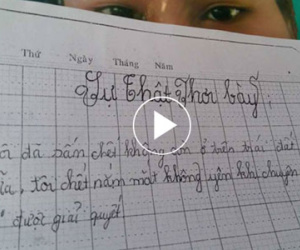 Thứ Ngày Tháng Năm
Sự Thật Phơi bày
đã bắn chết không còn ở trên trái đất
, tôi chết nằm mắt không yên khi chuyện
được giải quyết